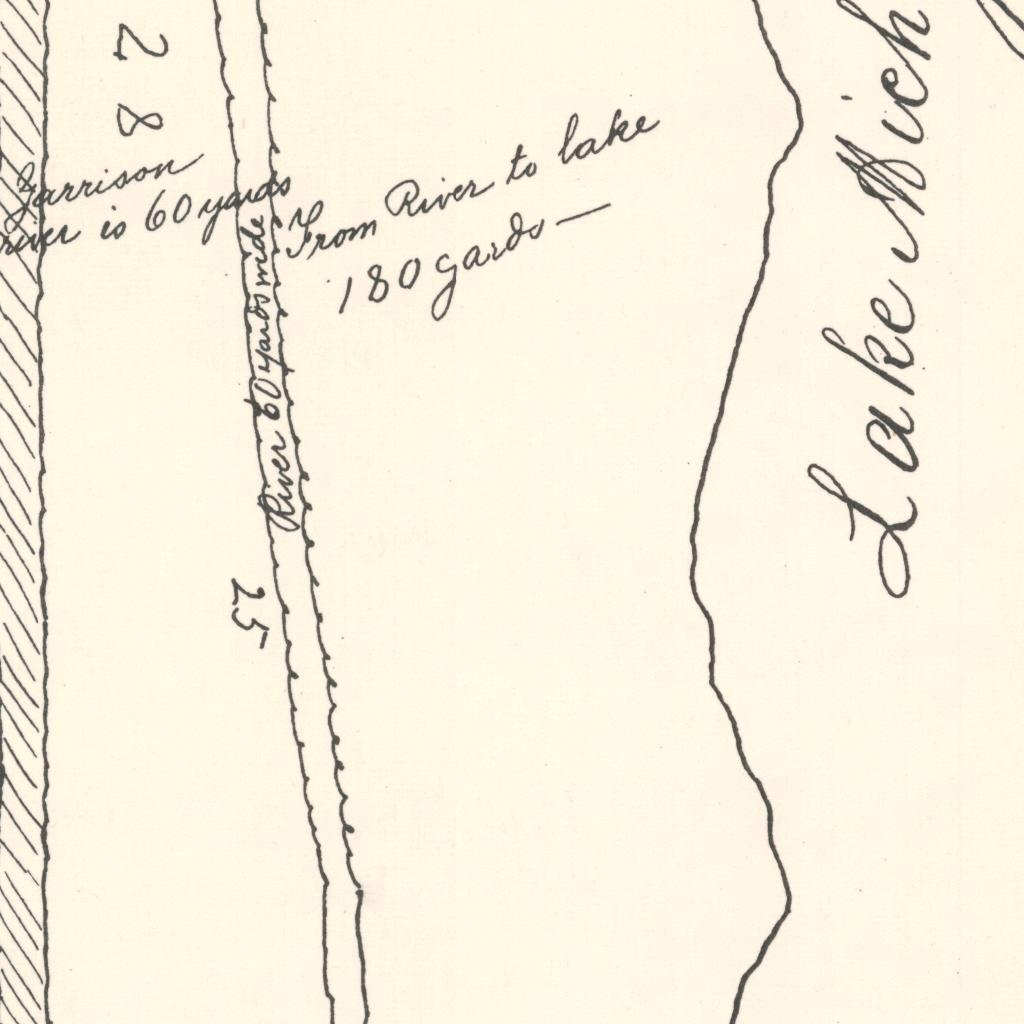 28
Garrison
river is 60 yards
From River to lake
180 yards —
River 60 yards wide
25
Lake Mich